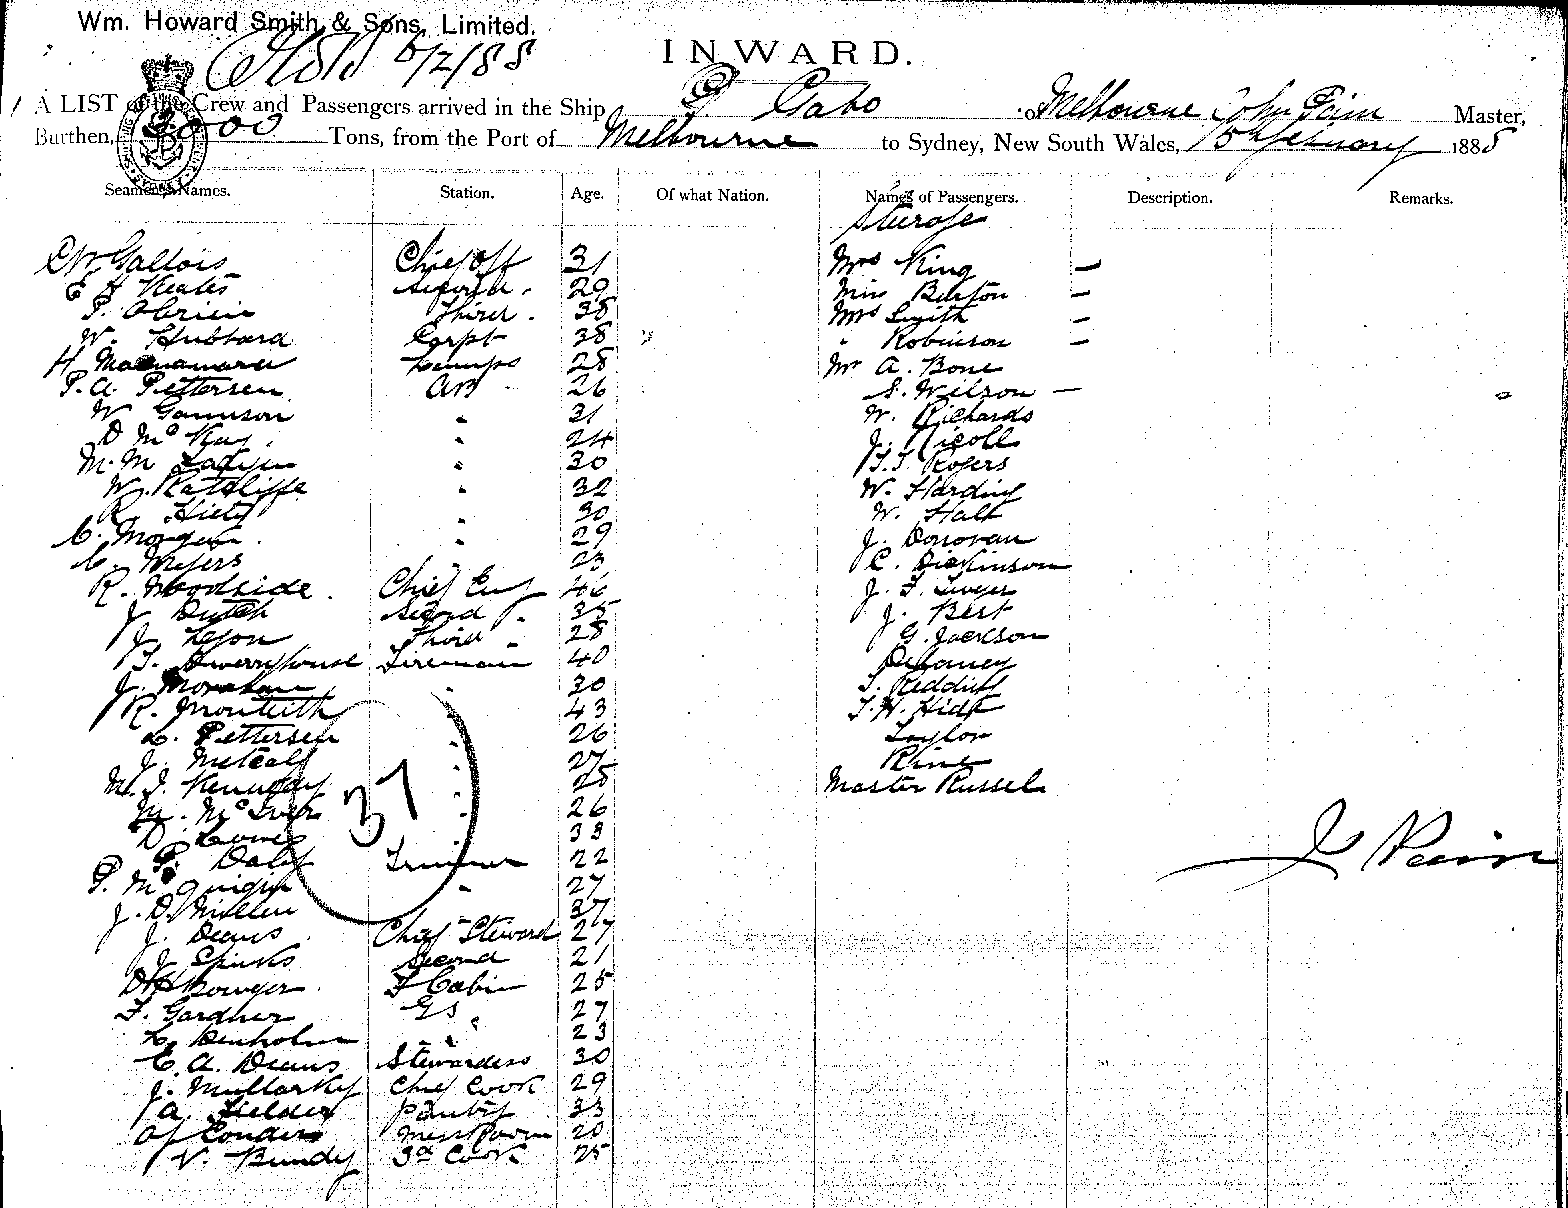 Wm. Howard Smith & Sons, Limited.
6/2/88
INWARD.
A LIST of the Crew and Passengers arrived in the Ship Gabo of Melbourne John Pain Master,
Burthen, 2000 Tons, from the Port of Melbourne to Sydney, New South Wales, 15th February 1888
Seamen's Names. Station. Age. Of what Nation. Names of Passengers. Description. Remarks.
Steerage
Gallois Chief Off 31 Mrs King —
E H Keates Second 29 Miss Burton —
P. OBrien Third 38 Mrs Smith —
W. Hubbard Carpt 38 " Robinson —
H Macnamara Lamps 28 Mr A. Bone
P. A. Pettersen AB 26 S. Wilson —
W Gunnson " 31 W. Richards
D McKay " 24 J. Nicoll
M. M " 30 Rogers
W. Ratcliffe " 32 W. Harding
R. " 30 W. Hall
C. Morgan " 29 J. Donovan
C. Meyers 23 C. Dickinson
R. Woodside Chief Eng 46 J.
J. Dutch Second " 35 J. Best
J. Lyon Third " 28 G. Jackson
T. Dwerryhouse Fireman 40 Delaney
J. Monahan " 30
R. Monteith " 43
L. Pettersen " 26 Taylor
J. Metcalf " 27
M. J. Kennedy " 25 Master Russel
M. McIver " 26
D. Lowe 33
P. Daly Trimmer 22
P. McGuigin " 27
J. D. Millen 37
J. Deans Chief Steward 27
J. Spinks Second 21
Bowyer F Cabin 25
F. Gardner GS 27
L. Denholm " 23
E. A. Deans Stewardess 30
J. Mullarky Chief Cook 29
A. Fielder Pantry 33
Conders Mess Room 20
V. Bundy 3rd Cook 25
37
J Pain